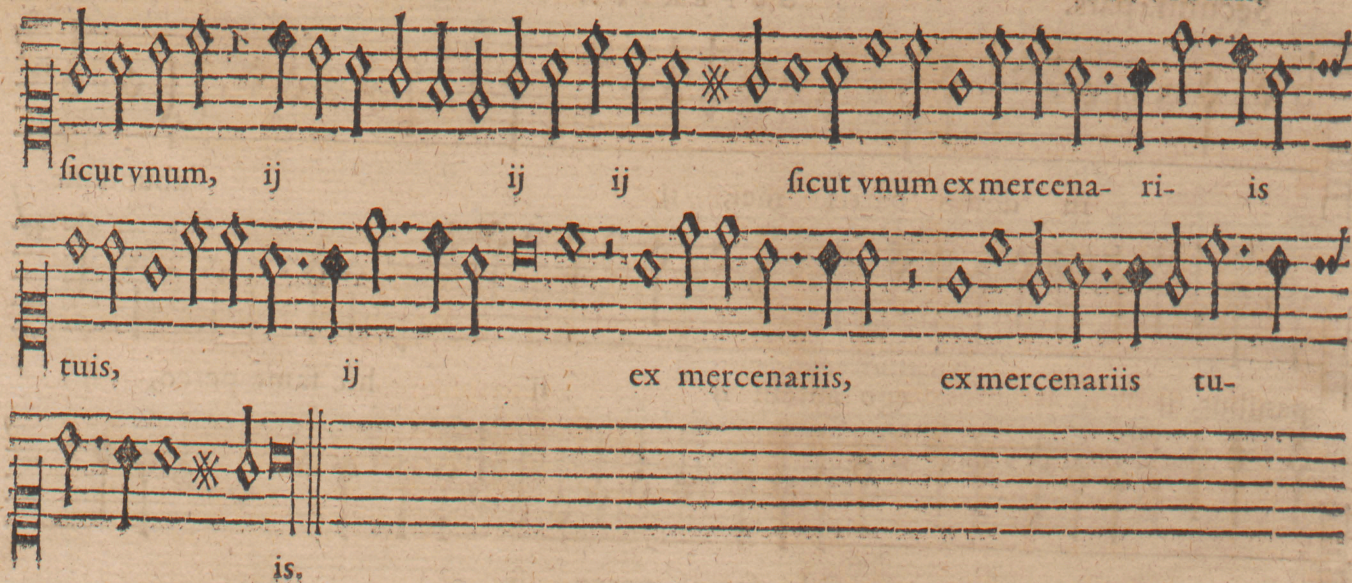 ſicut vnum, ij ij ij ſicut vnum ex mercena- ri- is
tuis, ij ex mercenariis, ex mercenariis tu-
is.